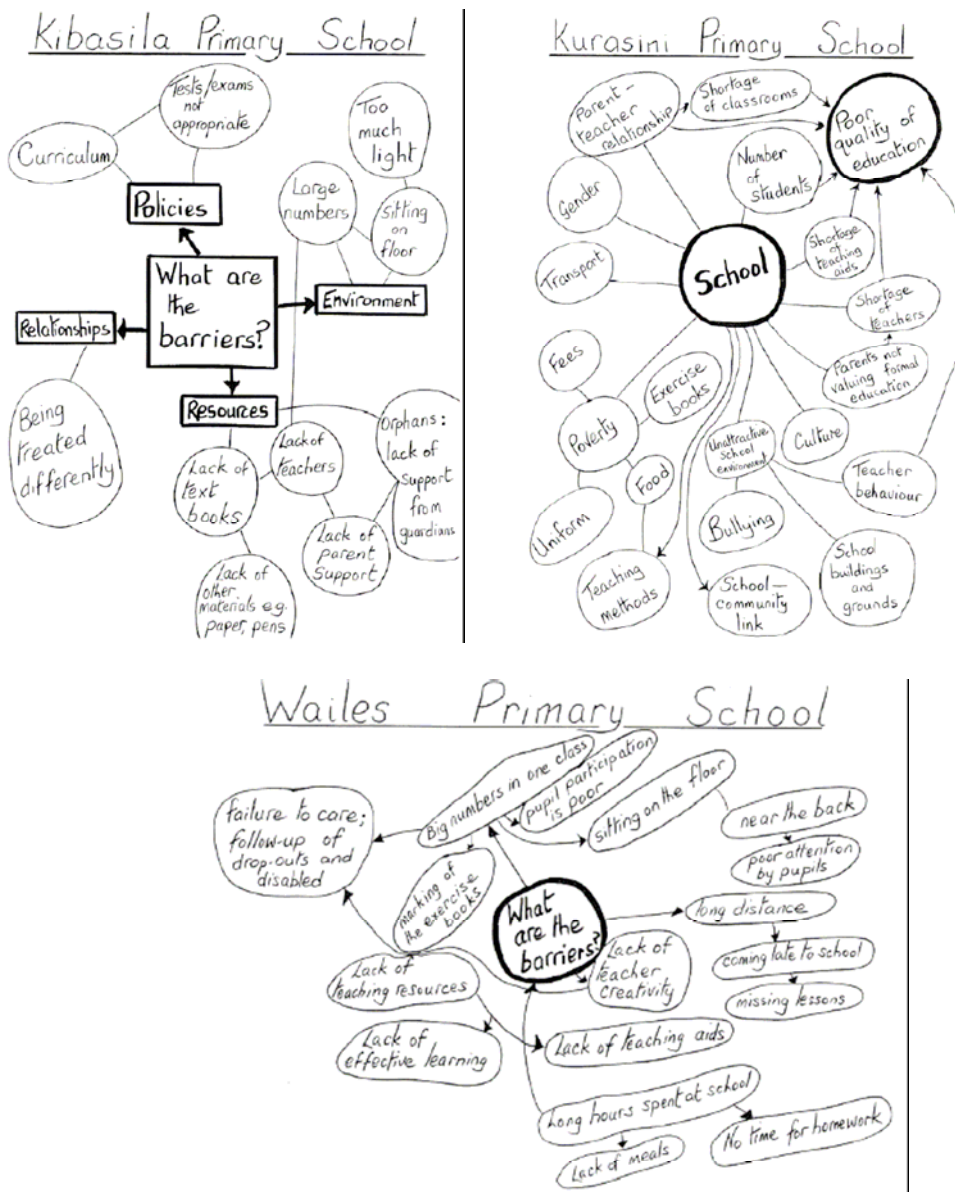 Kibasila Primary School
Tests/exams
not
appropriate
Curriculum
Policies
Too
much
light
Large
numbers
Sitting
on
floor
What are
the
barriers?
Environment
Relationships
Resources
Being
treated
differently
Lack of
text
books
Lack of
teachers
Orphans:
lack of
support
from
guardians
Lack of
parent
Support
Lack of
other
materials e.g.
paper, pens
Kurasini Primary School
Parent-
teacher
relationship
Shortage
of classrooms
Poor
quality of
education
Number
of
students
Gender
Transport
School
Shortage
of
teaching
aids
Shortage
of
teachers
Fees
Exercise
books
Parents not
valuing formal
education
Poverty
Unattractive
School
environment
Culture
Food
Teacher
behaviour
Uniform
Bullying
Teaching
methods
School-
community
link
School
buildings
and
grounds
Wailes Primary School
Big numbers in one class
pupil participation
is poor
sitting on the floor
failure to care;
follow-up of
drop-outs and
disabled
near the back
poor attention
by pupils
marking of
the exercise
books
What
are the
barriers?
long distance
coming late to school
missing lessons
Lack of
teacher
creativity
Lack of
teaching resources
Lack of
effective learning
Lack of teaching aids
Long hours spent at school
No time for homework
Lack of meals